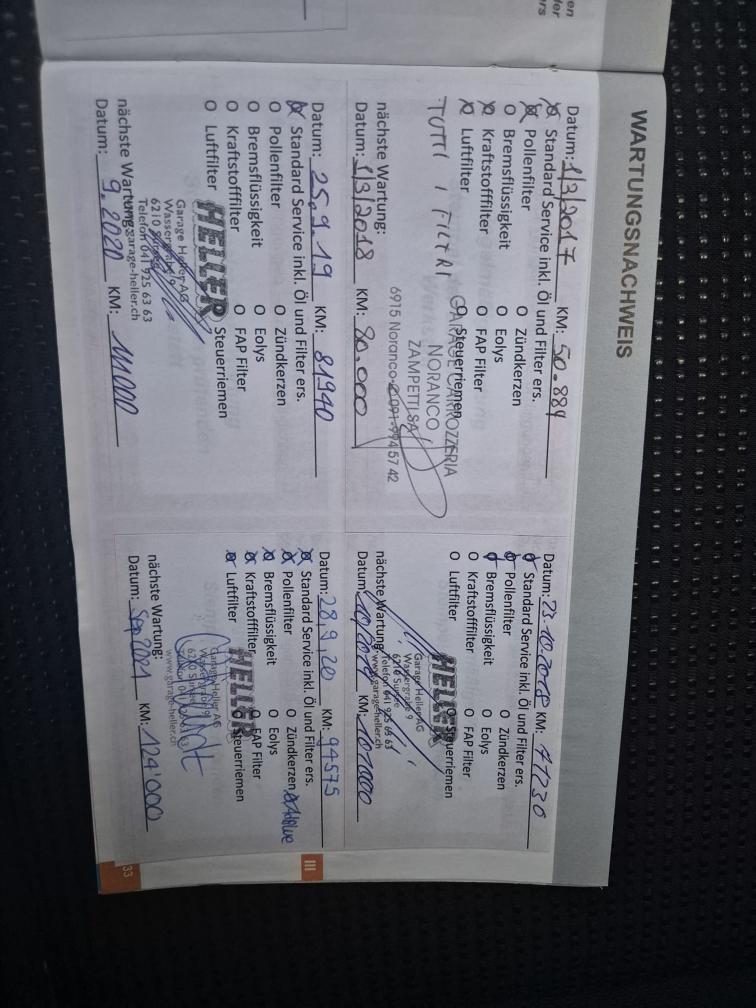 WARTUNGSNACHWEIS
Datum: 1/3/2017 KM: 50.889
Standard Service inkl. Öl und Filter ers.
Pollenfilter O Zündkerzen
O Bremsflüssigkeit O Eolys
Kraftstofffilter O FAP Filter
Luftfilter O Steuerriemen
TUTTI I FILTRI
GARAGE CARROZZERIA
NORANCO
ZAMPETTI SA
6915 Noranco 091-994 57 42
nächste Wartung:
Datum: 1/3/2018 KM: 80.000
Datum: 25.9.19 KM: 81940
Standard Service inkl. Öl und Filter ers.
O Pollenfilter O Zündkerzen
O Bremsflüssigkeit O Eolys
O Kraftstofffilter O FAP Filter
O Luftfilter O Steuerriemen
HELLER
Garage Heller AG
Wassergrabe 9
6210 Sursee
Telefon 041 925 63 63
www.garage-heller.ch
nächste Wartung:
Datum: 9.2020 KM: 111000
Datum: 23.10.2018 KM: 77230
Standard Service inkl. Öl und Filter ers.
Pollenfilter O Zündkerzen
Bremsflüssigkeit O Eolys
O Kraftstofffilter O FAP Filter
O Luftfilter O Steuerriemen
HELLER
Garage Heller AG
Wassergrabe 9
6210 Sursee
Telefon 041 925 63 63
www.garage-heller.ch
nächste Wartung:
Datum: 10/2019 KM: 107000
Datum: 28.9.20 KM: 94575
Standard Service inkl. Öl und Filter ers.
Pollenfilter O Zündkerzen Adblue
Bremsflüssigkeit O Eolys
Kraftstofffilter O FAP Filter
Luftfilter O Steuerriemen
HELLER
Garage Heller AG
Wassergrabe 9
6210 Sursee
www.garage-heller.ch
nächste Wartung:
Datum: Sep 2021 KM: 124'000
III
33